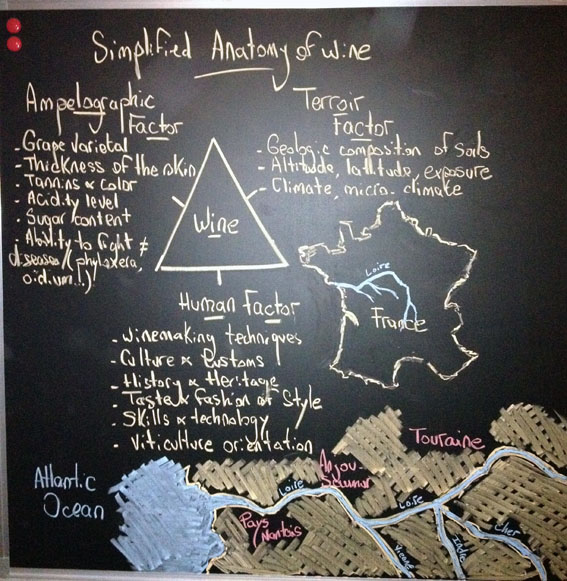 Simplified Anatomy of Wine
Ampelographic
Factor
- Grape varietal
- Thickness of the skin
- Tannins & color
- Acidity level
- Sugar content
- Ability to fight ≠
diseases (phyloxera,
oidium...)!
Terroir
Factor
- Geologic composition of soils
- Altitude, lattitude, exposure
- Climate, micro-climate
Wine
Human Factor
- Winemaking techniques
- Culture & Customs
- History & Heritage
- Taste & Fashion of Style
- Skills & technology
- Viticulture orientation
Loire
France
Atlantic
Ocean
Pays
Nantais
Loire
Anjou-
Saumur
Touraine
Loire
Vienne
Indre
Cher